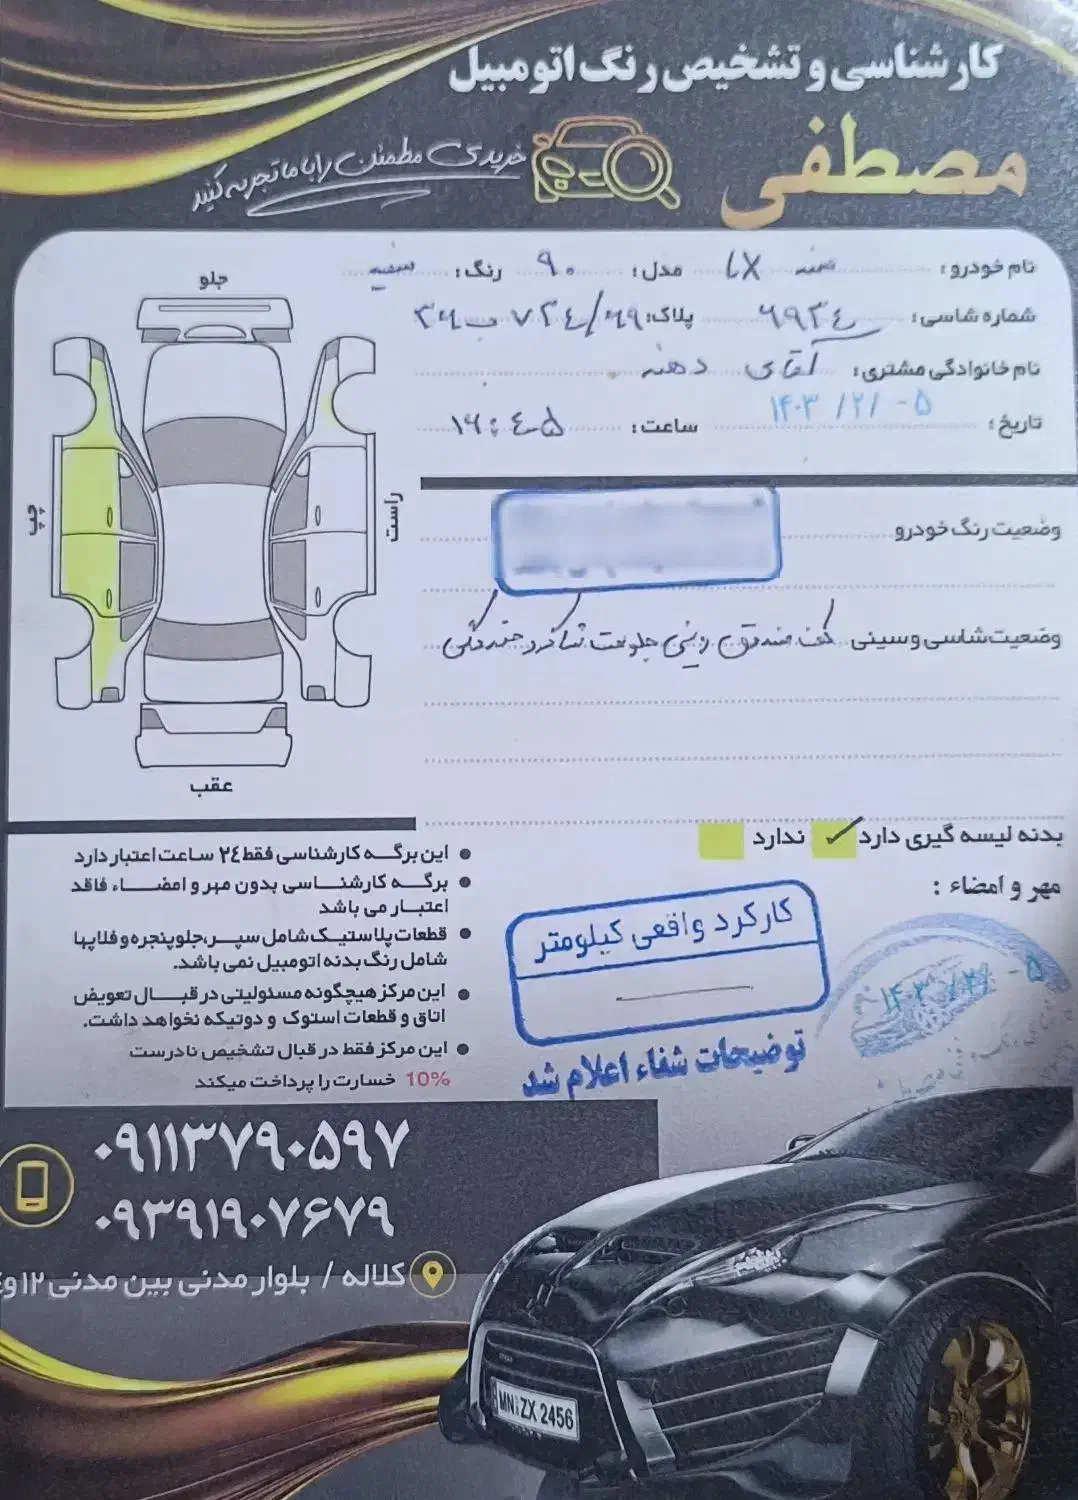 کارشناسی و تشخیص رنگ اتومبیل
مصطفی
خریدی مطمئن را با ما تجربه کنید
نام خودرو: سمند LX مدل: ۹۰ رنگ: سفید
شماره شاسی: ۶۹۳۴ پلاک: ۶۹/ ۷۳۴ ب ۳۶
نام خانوادگی مشتری: آقای دهنه
تاریخ: ۱۴۰۳/۲/-۵ ساعت: ۱۶:۴۰۵
جلو
چپ
راست
عقب
وضعیت رنگ خودرو
وضعیت شاسی و سینی کف صندوق سینی جلو سمت شاگرد خوردگی
بدنه لیسه گیری دارد ✓ ندارد
مهر و امضاء :
این برگه کارشناسی فقط ۲٤ ساعت اعتبار دارد
برگه کارشناسی بدون مهر و امضاء فاقد
اعتبار می باشد
قطعات پلاستیک شامل سپر،جلو پنجره و فلاپها
شامل رنگ بدنه اتومبیل نمی باشد.
این مرکز هیچگونه مسئولیتی در قبال تعویض
اتاق و قطعات استوک و دوتیکه نخواهد داشت.
این مرکز فقط در قبال تشخیص نادرست
10% خسارت را پرداخت میکند
کارکرد واقعی کیلومتر
۱۴۰۳/۲/-۵
توضیحات شفاء اعلام شد
۰۹۱۱۳۷۹۰۵۹۷
۰۹۳۹۱۹۰۷۶۷۹
کلاله / بلوار مدنی بین مدنی ۱۲ و
MN·ZX 2456